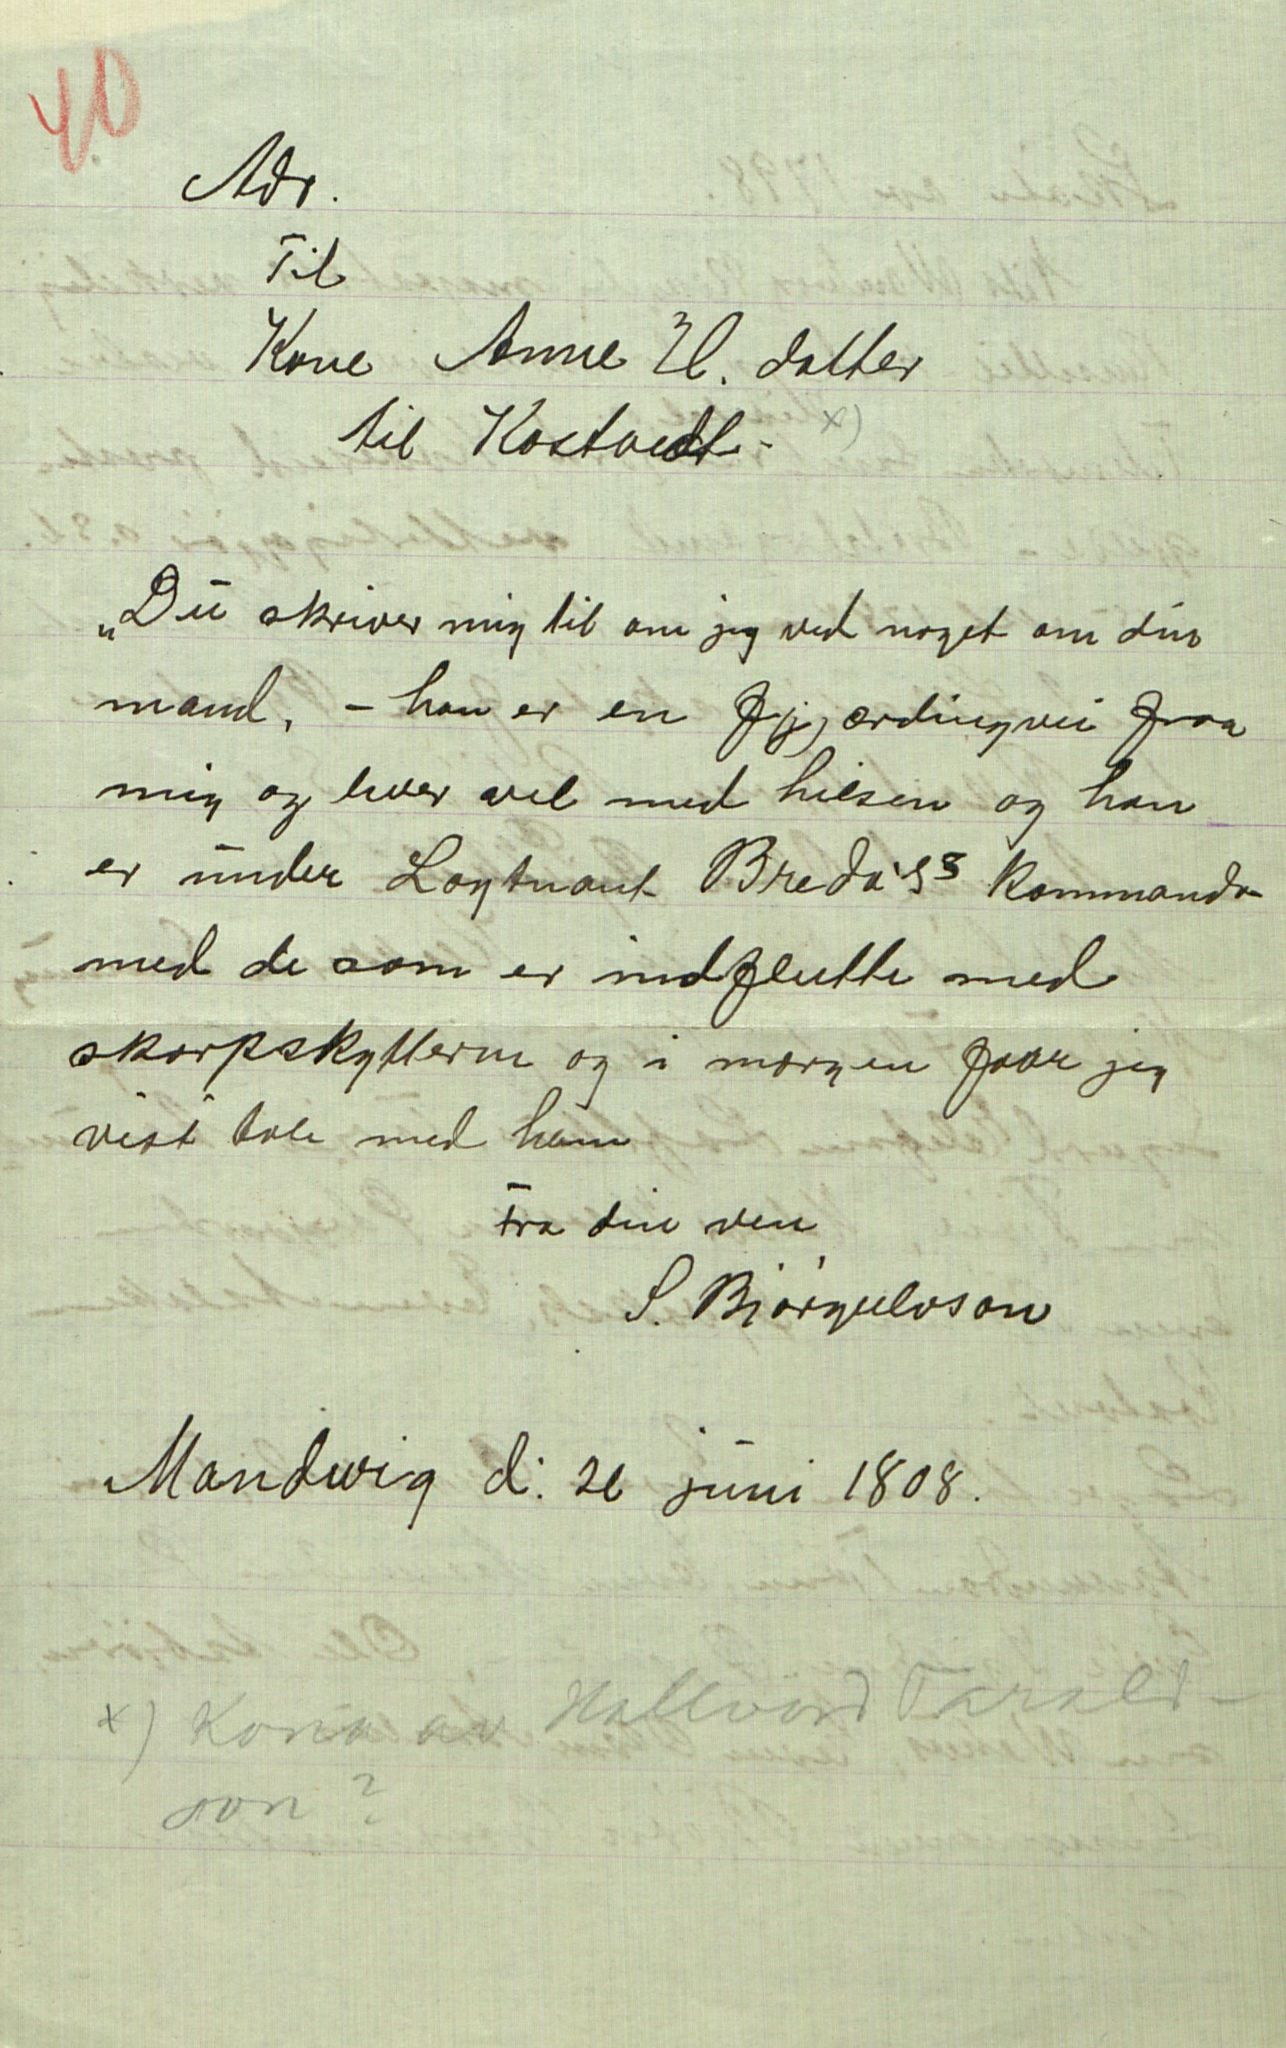 40
Adr.
Til
Kone Anne H. datter
til Kostvedt - x)
„Du skriver mig til om jeg ved noget om din
mand, - han er en fj(j)ærdingvei fraa
mig og lever vel med hilsen og han
er under Løgtnant Breda's kommando
med de som er indflutte med
skarpskytterne og i morgen faar jeg
vist tale med ham
Fra din ven
S. Bjørgulvson
Mandwig d: 26 juni 1808.
x) Kona av Hallvard Tarald-
son?